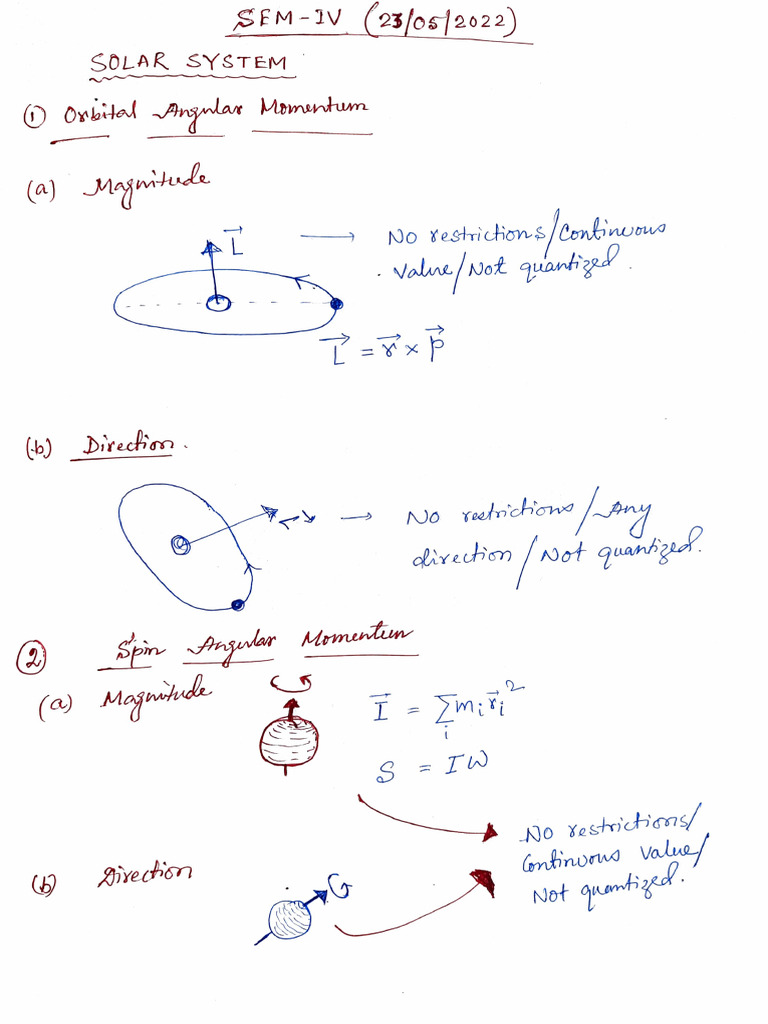 SEM-IV (23/05/2022)
SOLAR SYSTEM
① Orbital Angular Momentum
(a) Magnitude
L⃗ → No restrictions/Continuous
Value/Not quantized.
L⃗ = r⃗ × p⃗
(b) Direction.
→ No restrictions/Any
direction/Not quantized.
② Spin Angular Momentum
(a) Magnitude
I⃗ = Σᵢ mᵢ r⃗ᵢ²
S = IW
No restrictions/
Continuous Value/
Not quantized.
(b) Direction